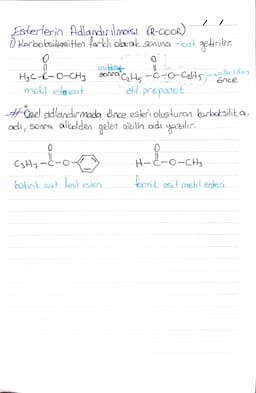 Esterlerin Adlandırılması (R-COOR)
1) Karboksilasitten farklı olarak sonuna -oat getirilir.
O O
H₃C-C-O-CH₃ sonra C₂H₅-C-O-C₂H₅ alkolden
önce
metil etanoat etil propanoat
* Özel adlandırmada önce esteri oluşturan karboksilit a.
adı, sonra alkolden gelen alkilin adı yazılır.
O O
C₃H₇-C-O- H-C-O-CH₃
bütirik asit fenil esteri formik asit metil esteri